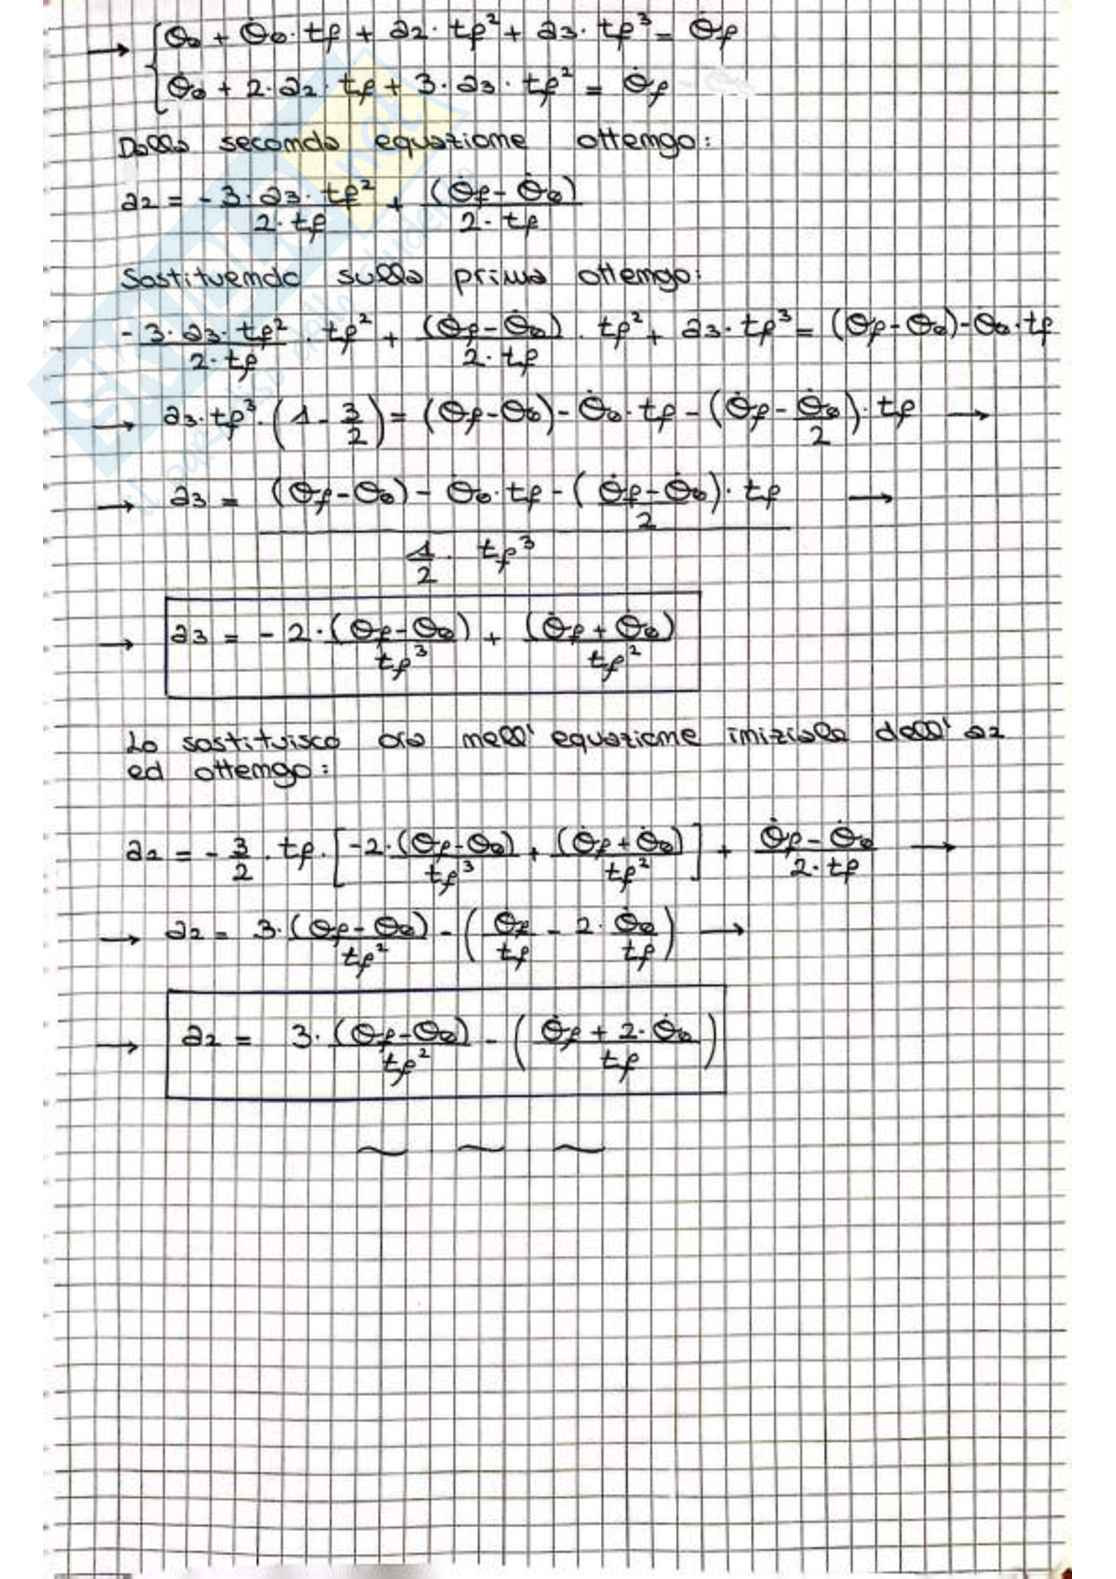 → { θ₀ + θ̇₀·tf + a₂·tf² + a₃·tf³ = θf
θ̇₀ + 2·a₂·tf + 3·a₃·tf² = θ̇f
Dalla seconda equazione ottengo:
a₂ = -3·a₃·tf² / 2·tf + (θ̇f - θ̇₀) / 2·tf
Sostituendo sulla prima ottengo:
-3·a₃·tf² / 2·tf · tf² + (θ̇f - θ̇₀) / 2·tf · tf² + a₃·tf³ = (θf - θ₀) - θ̇₀·tf
→ a₃·tf³·(1 - 3/2) = (θf - θ₀) - θ̇₀·tf - (θ̇f - θ̇₀ / 2)·tf →
→ a₃ = (θf - θ₀) - θ̇₀·tf - (θ̇f - θ̇₀ / 2)·tf / 1/2 · tf³ →
→ a₃ = -2·(θf - θ₀) / tf³ + (θ̇f + θ̇₀) / tf²
Lo sostituisco ora nell' equazione iniziale dell' a₂
ed ottengo:
a₂ = -3/2 · tf·[-2·(θf - θ₀) / tf³ + (θ̇f + θ̇₀) / tf²] + θ̇f - θ̇₀ / 2·tf →
→ a₂ = 3·(θf - θ₀) / tf² - (θ̇f / tf - 2·θ̇₀ / tf) →
→ a₂ = 3·(θf - θ₀) / tf² - (θ̇f + 2·θ̇₀ / tf)
~ ~ ~